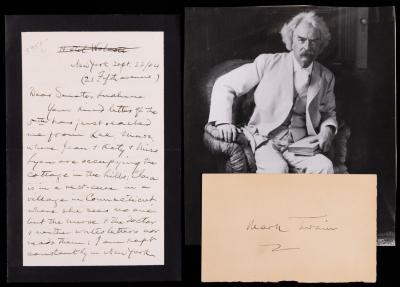 New York Sept. 23/04
(21 Fifth avenue)
Dear Senator
Your kind letter of the
has just reached
me from Lee, Mass,
where Jean & Katy & Miss
Lyon are occupying the
cottage in the hills; Clara
is in a rest-cure in a
village in Connecticut
where she sees no one
but the nurse & the doctor
& neither writes letters nor
reads them; I am kept
constantly in New York
Mark Twain